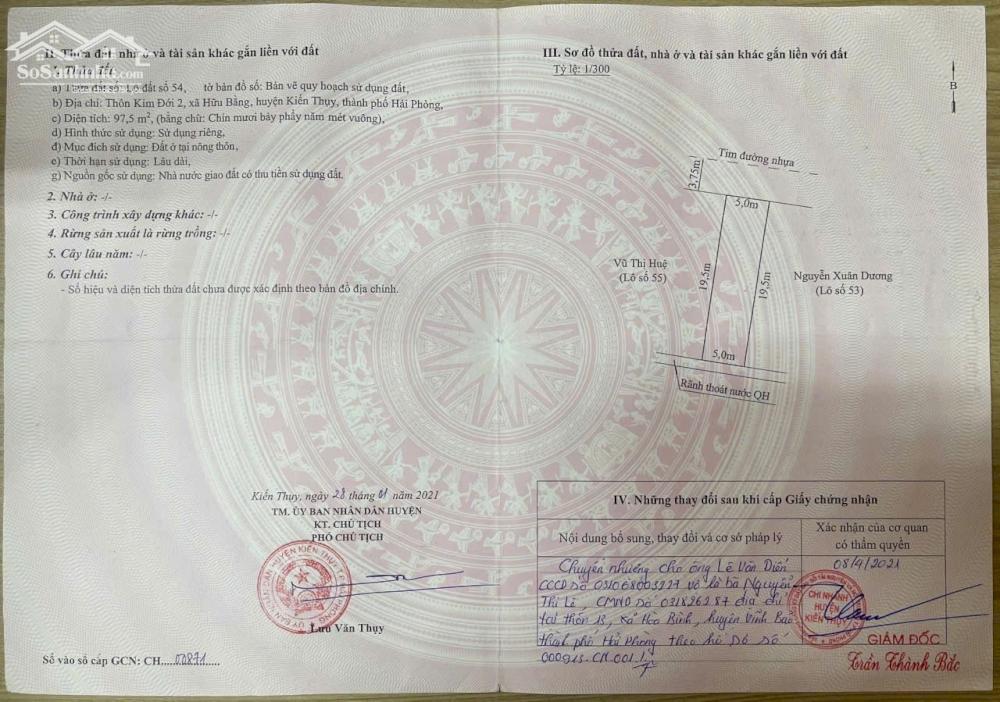 SoSanhnha.com
II. Thửa đất, nhà ở và tài sản khác gắn liền với đất
1. Thửa đất:
a) Thửa đất số: Lô đất số 54, tờ bản đồ số: Bản vẽ quy hoạch sử dụng đất,
b) Địa chỉ: Thôn Kim Đới 2, xã Hữu Bằng, huyện Kiến Thụy, thành phố Hải Phòng,
c) Diện tích: 97,5 m², (bằng chữ: Chín mươi bảy phẩy năm mét vuông),
d) Hình thức sử dụng: Sử dụng riêng,
đ) Mục đích sử dụng: Đất ở tại nông thôn,
e) Thời hạn sử dụng: Lâu dài,
g) Nguồn gốc sử dụng: Nhà nước giao đất có thu tiền sử dụng đất.
2. Nhà ở: -/-
3. Công trình xây dựng khác: -/-
4. Rừng sản xuất là rừng trồng: -/-
5. Cây lâu năm: -/-
6. Ghi chú:
- Số hiệu và diện tích thửa đất chưa được xác định theo bản đồ địa chính.
Kiến Thụy, ngày 28 tháng 01 năm 2021
TM. ỦY BAN NHÂN DÂN HUYỆN
KT. CHỦ TỊCH
PHÓ CHỦ TỊCH
Lưu Văn Thụy
Số vào sổ cấp GCN: CH.....00871.......
III. Sơ đồ thửa đất, nhà ở và tài sản khác gắn liền với đất
Tỷ lệ: 1/300
B
Tim đường nhựa
3,75m
5,0m
Vũ Thị Huệ
(Lô số 55)
19,5m
19,5m
Nguyễn Xuân Dương
(Lô số 53)
5,0m
Rãnh thoát nước QH
IV. Những thay đổi sau khi cấp Giấy chứng nhận
Nội dung bổ sung, thay đổi và cơ sở pháp lý
Xác nhận của cơ quan
có thẩm quyền
Chuyển nhượng cho ông Lê Văn Diễn
CCCD số 031068003727 vợ là bà Nguyễn
Thị Lê, CMND số 031826287 địa chỉ
tại thôn 13, xã Hòa Bình, huyện Vĩnh Bảo
thành phố Hải Phòng theo hồ sơ số
000913.CN.001./.
08/4/2021
CHI NHÁNH
HUYỆN
KIẾN THỤY
GIÁM ĐỐC
Trần Thành Bắc